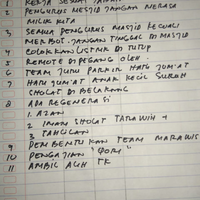 1 KERJA SESUAI
2 PENGURUS MESJID JANGAN MERASA
MILIK KITA
3 SEMUA PENGURUS MASJID KECUALI
MERBOT JANGAN TINGGAL DI MASJID
4 COLOKAN LISTRIK DI TUTUP
5 REMOTE DI PEGANG OLEH
6 TEAM JUTU PARKIR HARI JUM'AT
7 HARI JUM'AT ANAK KECIL SURUH
SHOLAT DI BELAKANG
8 ADA REGENERASI
1. AZAN
2. IMAM SHOLAT TARAWIH 4
3. TAHLILAN
9 PEMBENTUKAN TEAM MARAWIS
10 PENGAJIAN "QORI"
11 AMBIL ALIH TK